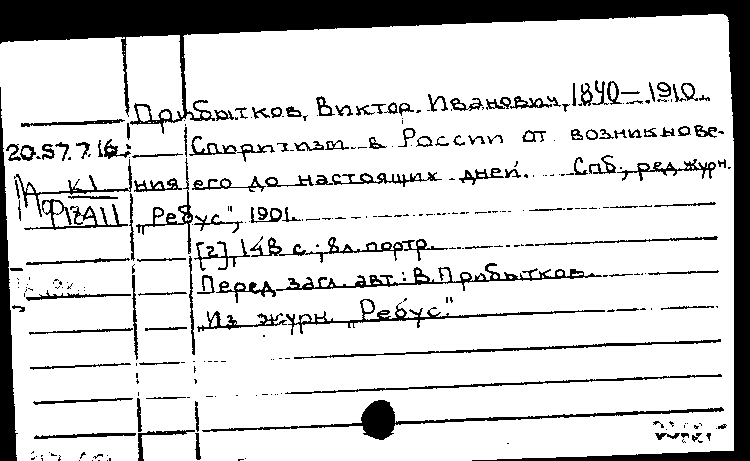 Прибытков, Виктор Иванович, 1840-1910.
20.57.7.16:
Спиритизм в России от возникнове-
К1
ния его до настоящих дней. Спб., ред. журн.
18А11
"Ребус", 1901.
[2], 148 с.; 8 л. портр.
Перед загл. авт.: В. Прибытков.
"Из журн. "Ребус."